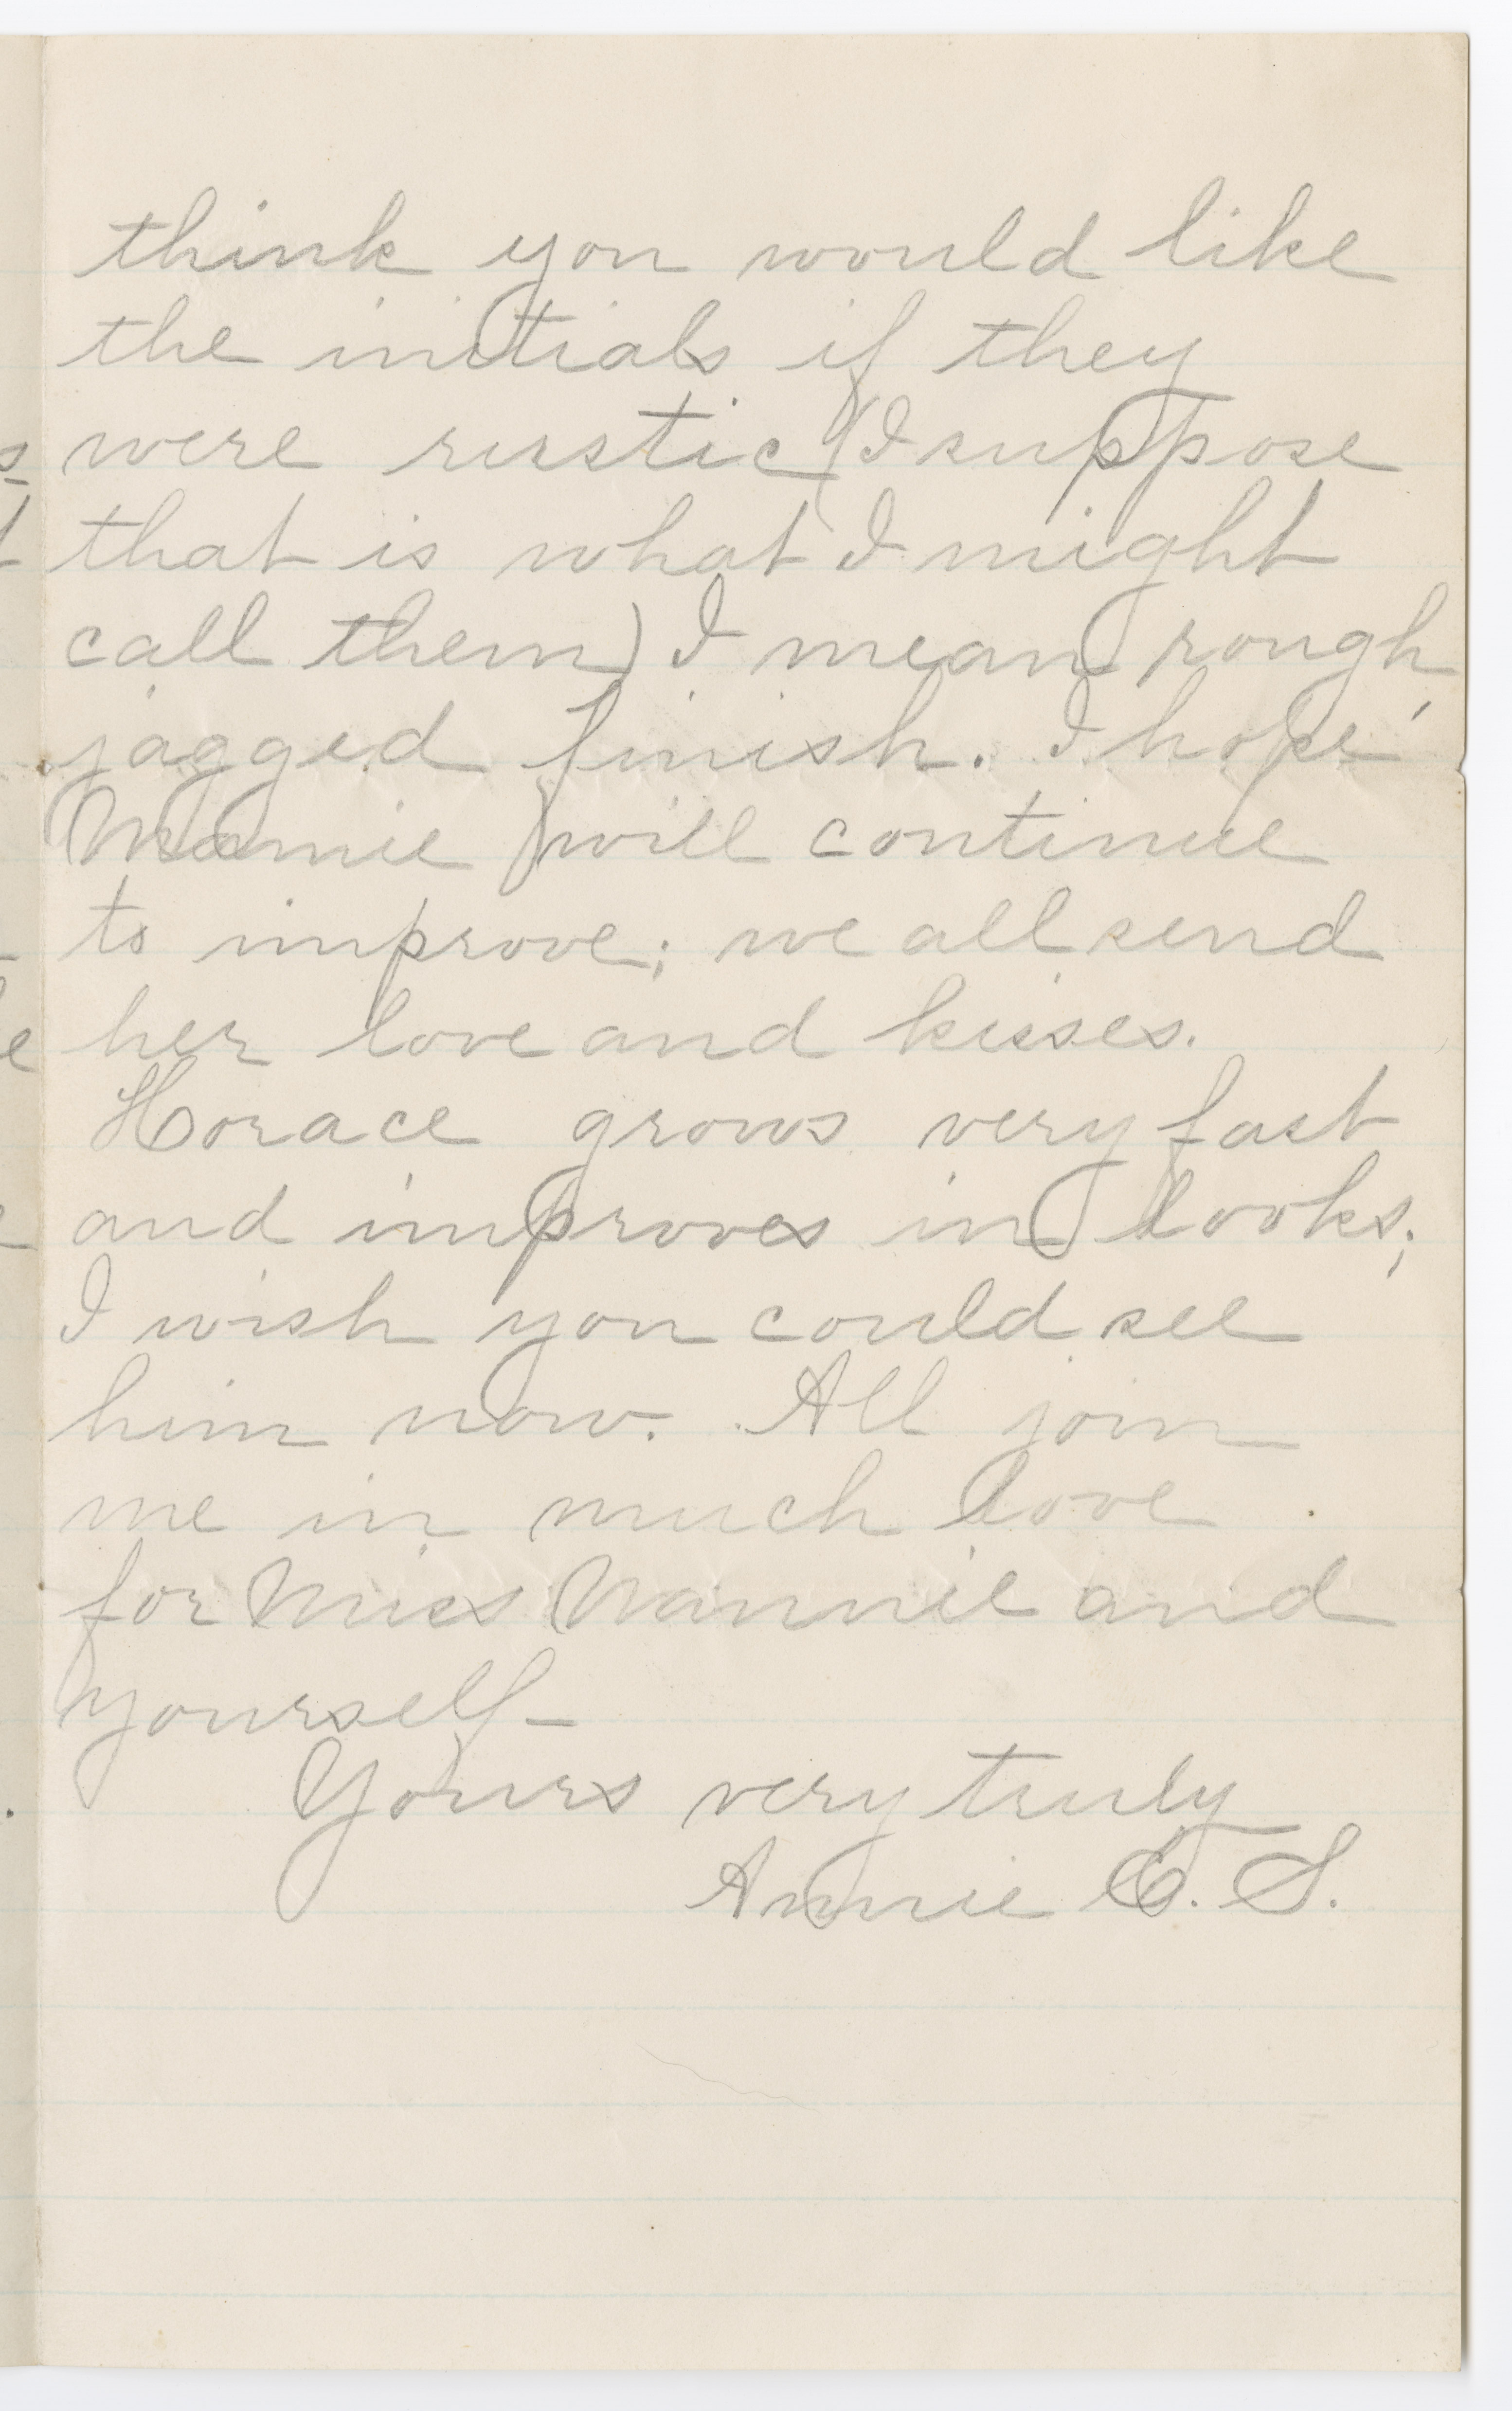 think you would like
the initials if they
were rustic (I suppose
that is what I might
call them) I mean rough,
jagged finish. I hope
Mamie will continue
to improve; we all send
her love and kisses.
Horace grows very fast
and improves in looks;
I wish you could see
him now. All join
me in much love
for Miss Nannie and
yourself_
Yours very truly
Annie E. S.